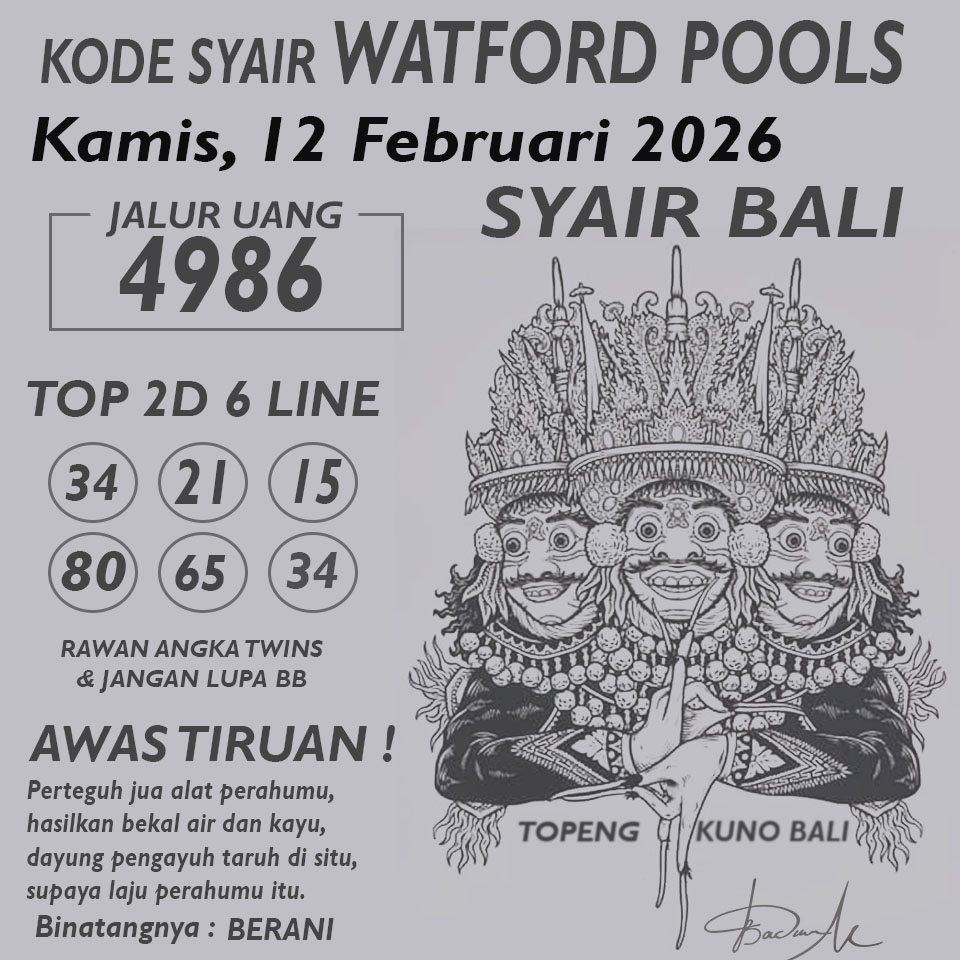 KODE SYAIR WATFORD POOLS
Kamis, 12 Februari 2026
SYAIR BALI
JALUR UANG
4986
TOP 2D 6 LINE
34 21 15
80 65 34
RAWAN ANGKA TWINS
& JANGAN LUPA BB
AWAS TIRUAN !
Perteguh jua alat perahumu,
hasilkan bekal air dan kayu,
dayung pengayuh taruh di situ,
supaya laju perahumu itu.
Binatangnya : BERANI
TOPENG KUNO BALI